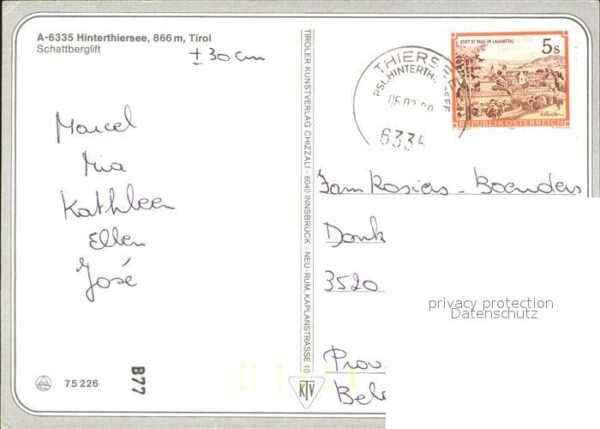 A-6335 Hinterthiersee, 866 m, Tirol
Schattberglift
± 30 cm
Marcel
Mia
Kathleen
Ellen
José
75 226
B77
TIROLER KUNSTVERLAG CHIZZALI · 6040 INNSBRUCK - NEU-RUM, KAPLANSTRASSE 10
KTV
STIFT ST. PAUL IM LAVANTTAL
5s
REPUBLIK ÖSTERREICH
THIERSEE
6335
Fam Rosiers - Boenders
Donk
3520
Prov
Bel
privacy protection
Datenschutz